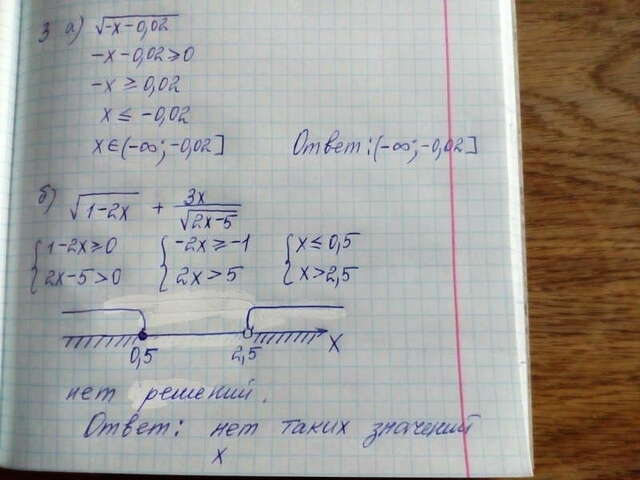 3 а) √-x-0,02
-x-0,02≥0
-x ≥ 0,02
x ≤ -0,02
x∈(-∞; -0,02]
Ответ: (-∞; -0,02]
б) √1-2x + 3x/√2x-5
{1-2x≥0 {-2x≥-1 {x≤0,5
{2x-5>0 {2x>5 {x>2,5
0,5 2,5 x
нет решений.
Ответ: нет таких значений
x